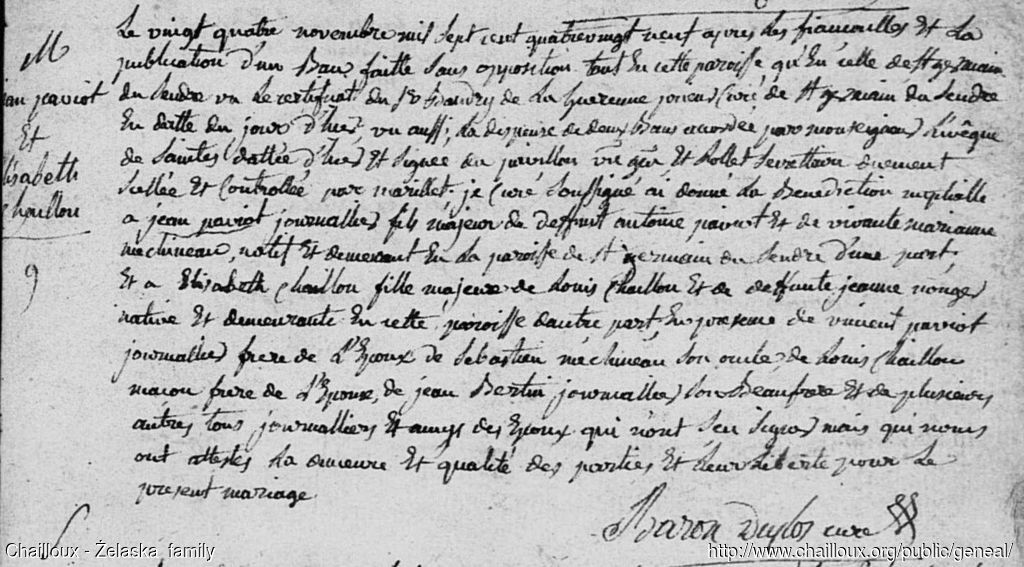 M
jean paviot
Et
Elisabeth
Chaillou
9
Le vingt quatre novembre mil sept cent quatrevingt neuf apres les fiancailles Et La
publication d'un Ban faitte sans opposition tant En cette paroisse qu'En celle de St germain
du Seudre vu Le certificat du Sr Baudry de La Guerenne prieur Curé de St germain du Seudre
En datte du jour d'hier, vu aussi, La dispense de deux Bans accordée par monseigneur L'evêque
de Saintes dattée d'hier Et Signée du vic gen Et Sollet Secrettaire duement
Scellée Et Controllée par marillet. je Curé Soussigné ai donné La Benediction nuptialle
a jean paviot journallier fils majeur de deffunt antoine paviot Et de vivante marianne
mechineau, natif Et demeurant En La paroisse de St germain du Seudre d'une part,
Et a Elisabeth Chaillou fille majeure de Louis Chaillou Et de deffunte jeanne
native Et demeurante En cette paroisse dautre part, En presence de vincent paviot
journallier frere de L'Epoux de Sebastien mechineau Son oncle, de Louis Chaillou
macon frere de L'Epouse, de jean Bertin journallier Son Beaufrere Et de plusieurs
autres tous journalliers Et amys des Epoux qui n'ont Seu Signer mais qui nous
ont attestés La demeure Et qualité des parties Et Leur Liberté pour Le
present mariage
Baron Duclos curé
Chailloux - Żelaska family
http://www.chailloux.org/public/geneal/